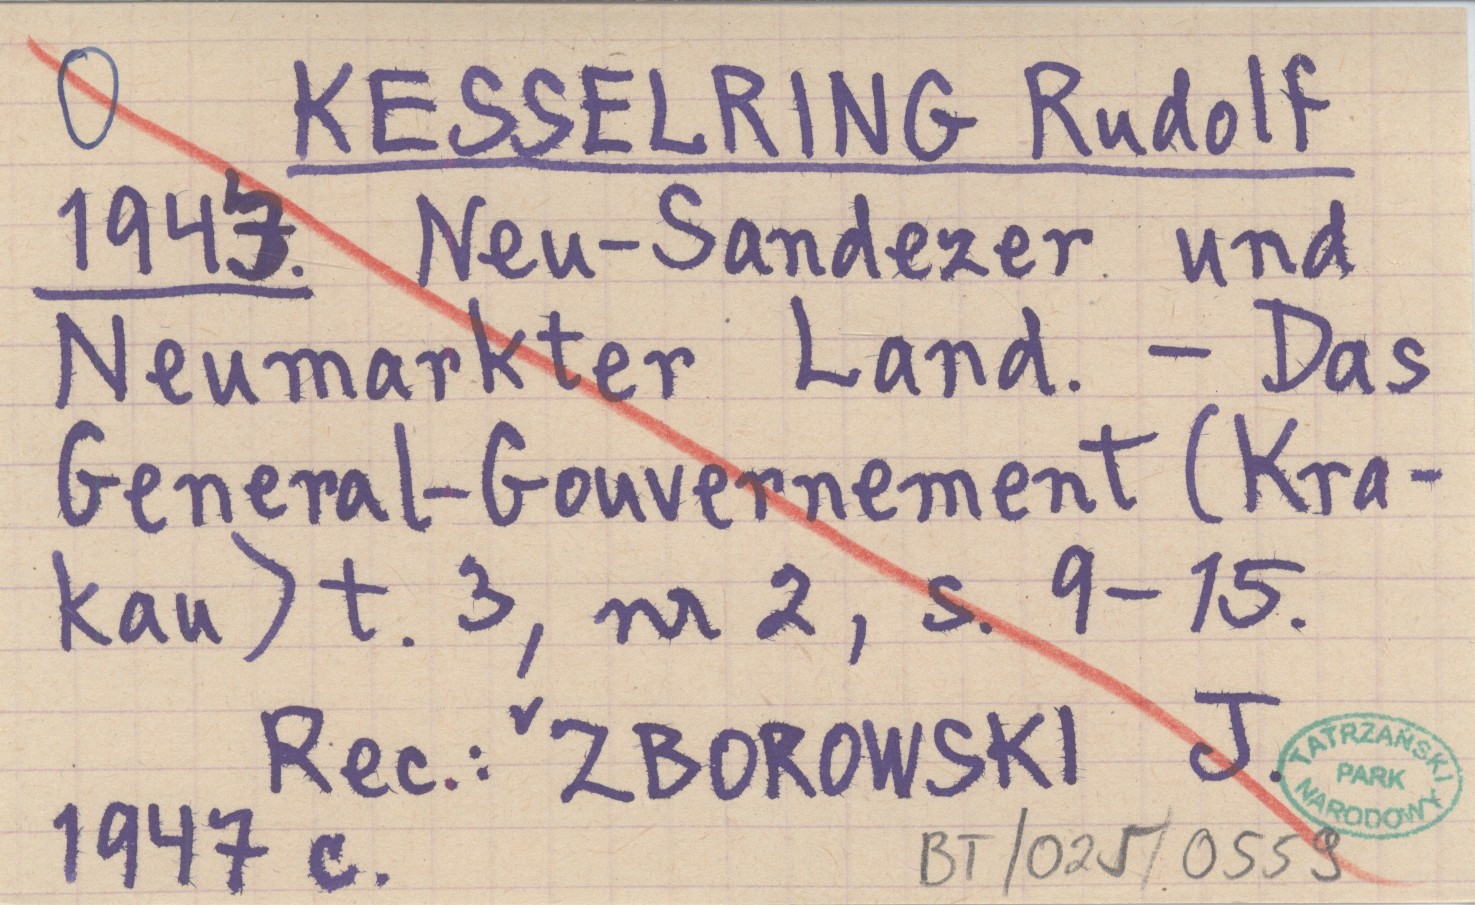 KESSELRING Rudolf
Neu-Sandezer und
Neumarkter Land. - Das
General-Gouvernement (Kra-
kau) t. 3, nr 2, s. 9-15.
Rec.: ZBOROWSKI J.
1947 c.
TATRZAŃSKI
PARK
NARODOWY
BT/025/0559